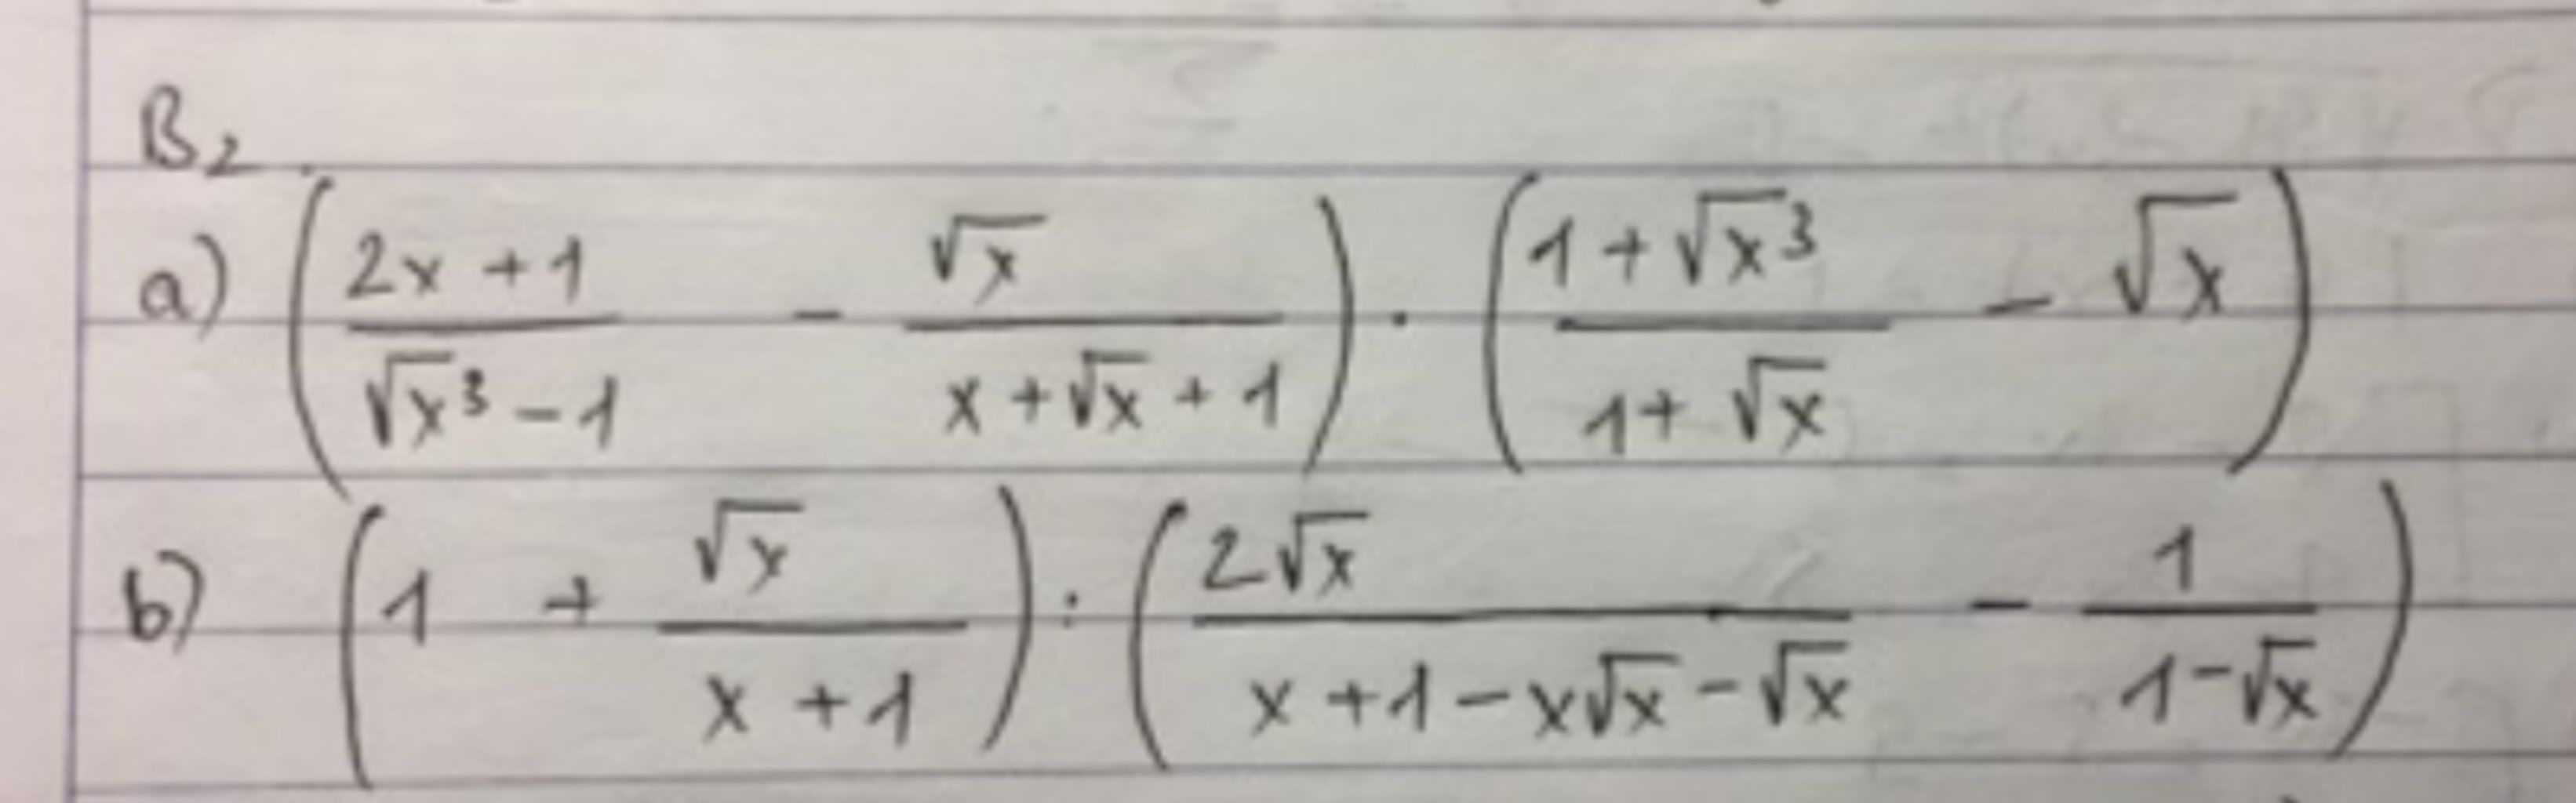 B2.
a) ( (2x + 1)/(√x³ - 1) - √x/(x + √x + 1) ) · ( (1 + √x³)/(1 + √x) - √x )
b) ( 1 + √x/(x + 1) ) : ( 2√x/(x + 1 - x√x - √x) - 1/(1 - √x) )